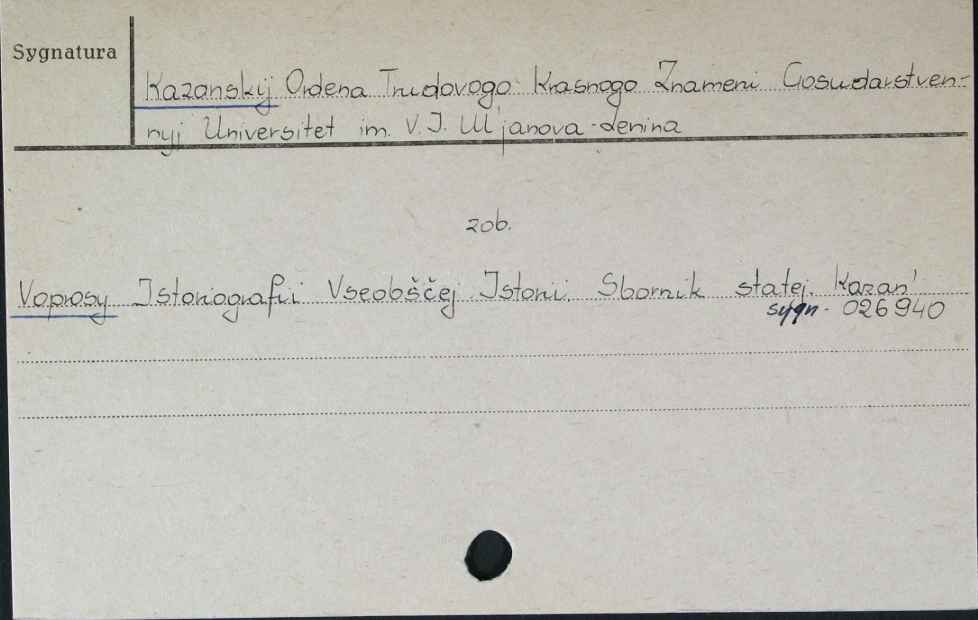 Sygnatura
Kazanskij Ordena Trudovogo Krasnogo Znameni Gosudarstven-
nyj Universitet im. V. I. Ul'janova-Lenina
zob.
Voprosy Istoriografii Vseobščej Istorii. Sbornik statej. Kazan'
sygn. 026940